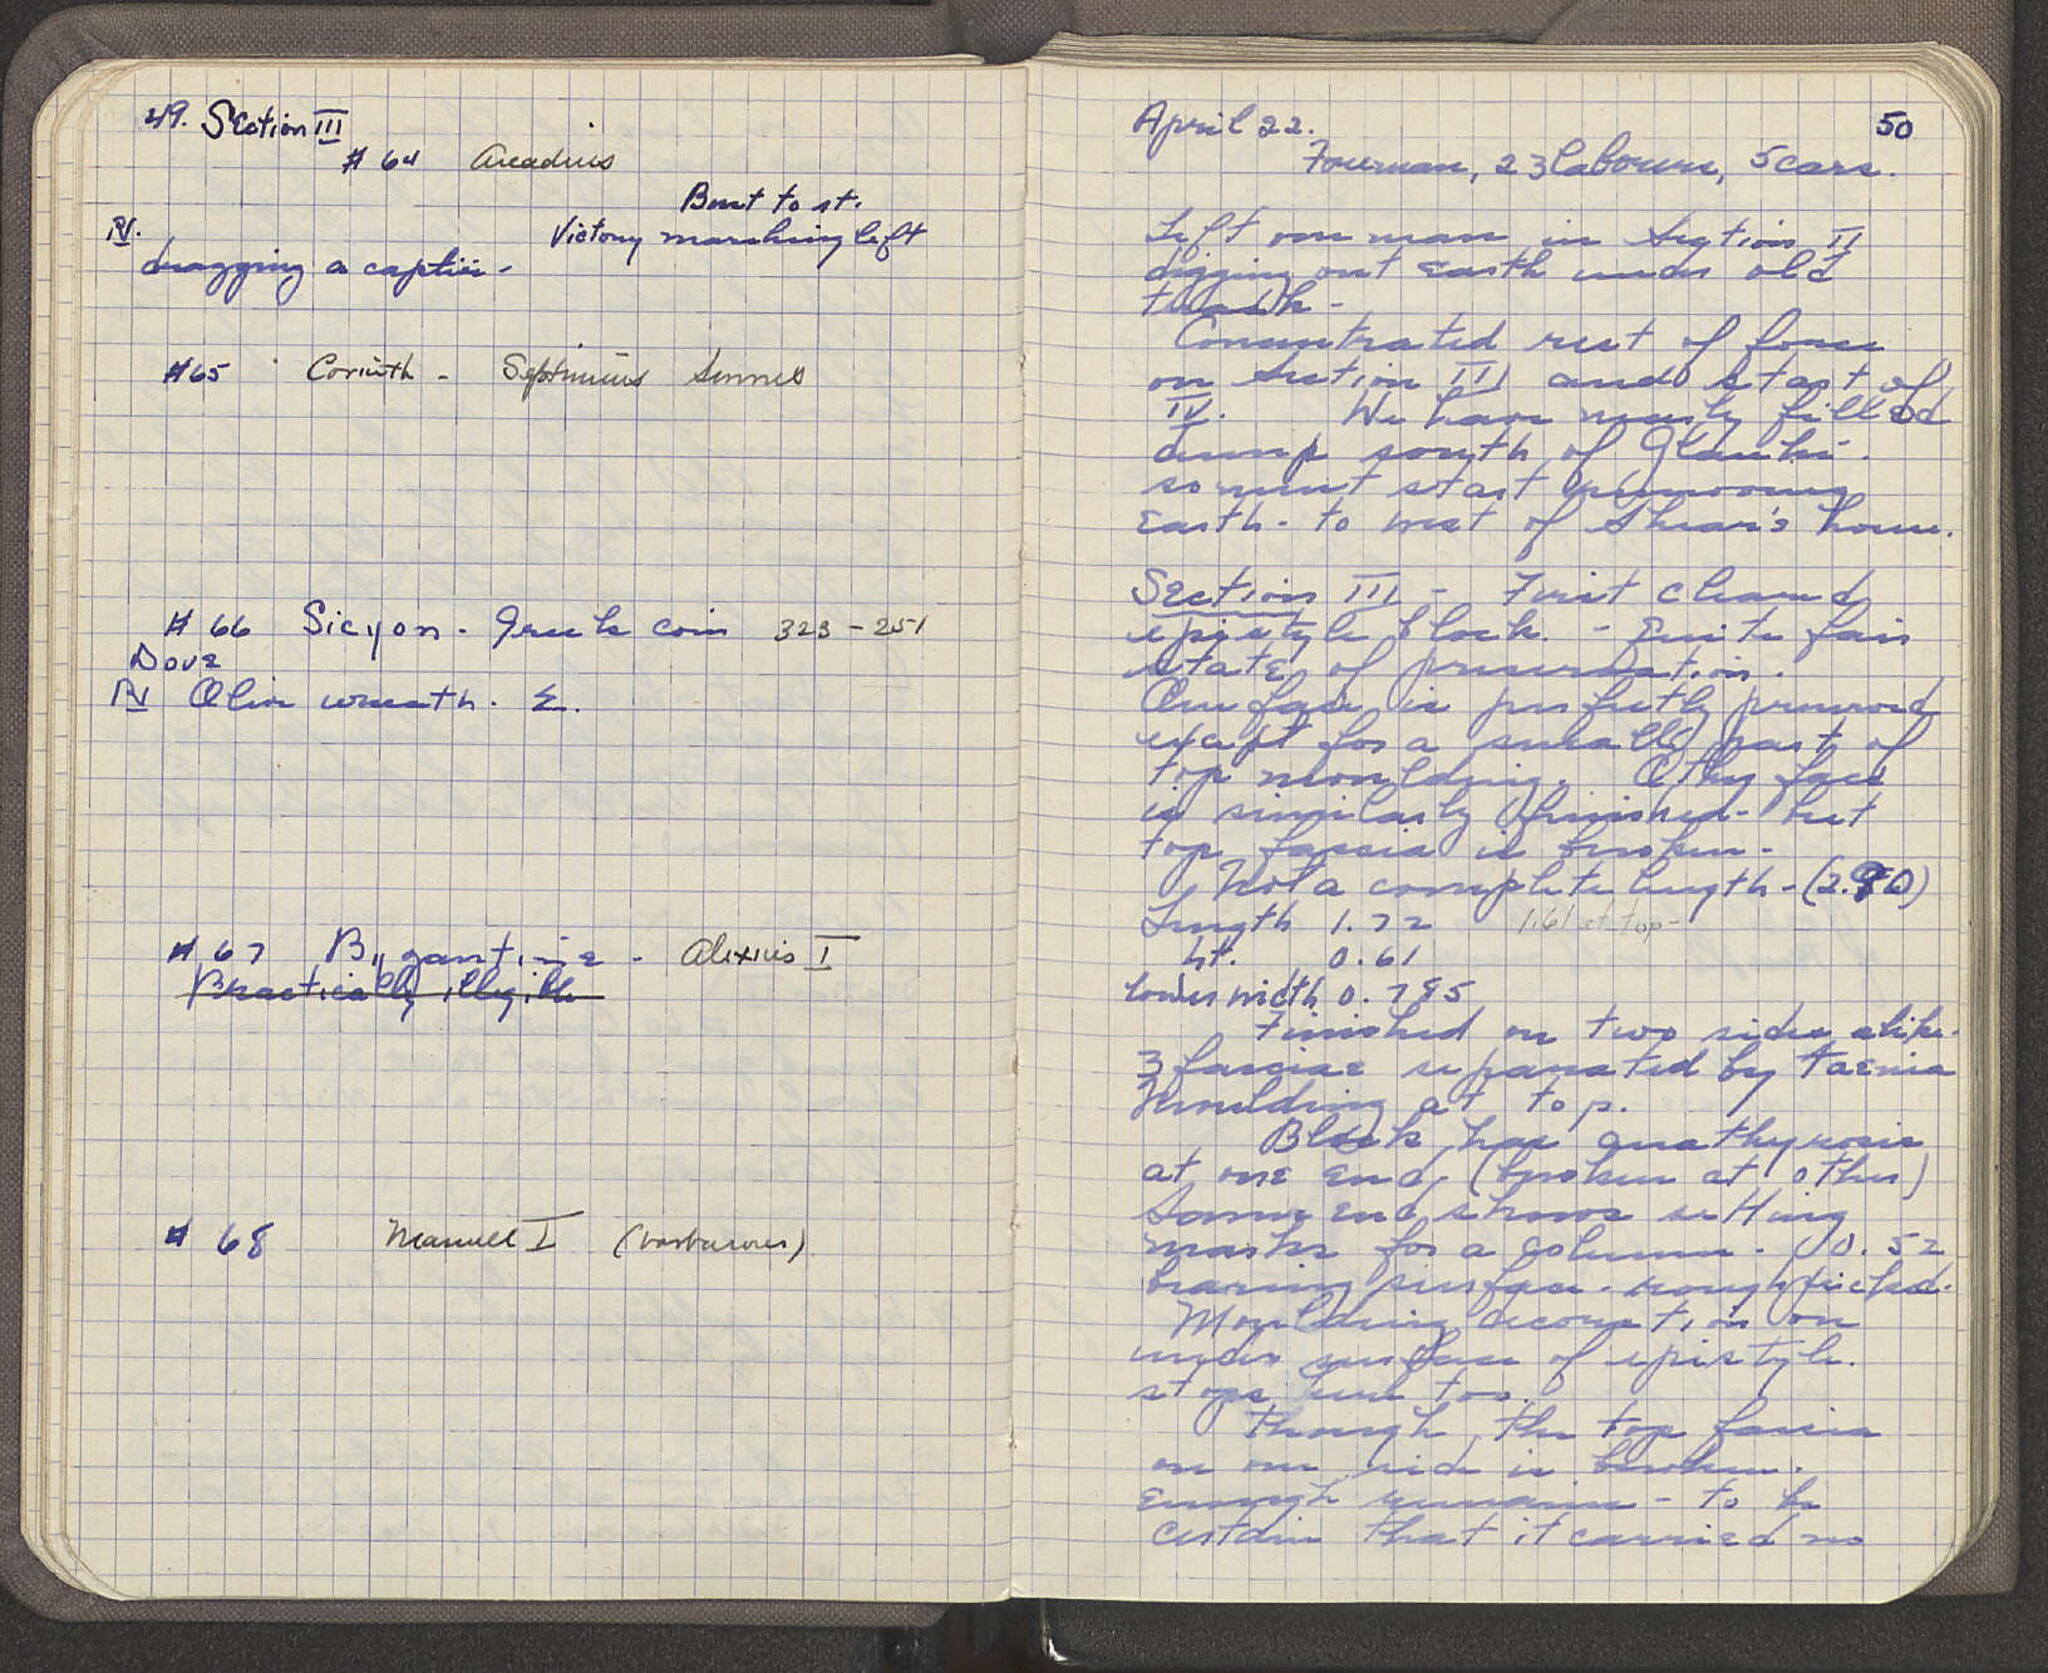 49. Section III
# 64 Arcadius
Bust to rt.
Rv. Victory marching left
dragging a captive -
#65 Corinth - Septimius Severus
# 66 Sicyon - Greek coin 323 - 251
Dove
Rv Olive wreath. Σ.
# 67 Byzantine - Alexius I
Practically illegible
# 68 Manuel I (barbarous)
April 22. 50
Foreman, 23 labourers, 5 cars.
Left one man in Section II
digging out earth under old
trench -
Concentrated rest of force
on Section III and start of
IV. We have nearly filled
dump south of Glauke -
so must start removing
earth - to west of Shear's house.
Section III - First cleaned
epistyle block. - Quite fair
state of preservation.
One face is perfectly preserved
except for a small part of
top moulding. Other face
is similarly finished - but
top fascia is broken -
Not a complete length - (2.90)
Length 1.72 1.61 at top -
ht. 0.61
lower width 0.785
Finished on two sides alike.
3 fasciae separated by taenia
Moulding at top.
Block has anathyrosis
at one end, (broken at other)
Same end shows setting
marks for a column - 0.52
bearing surface - rough picked.
Moulding decoration on
under surface of epistyle.
stops here too.
Though the top fascia
on one side is broken.
enough remains - to be
certain that it carried no